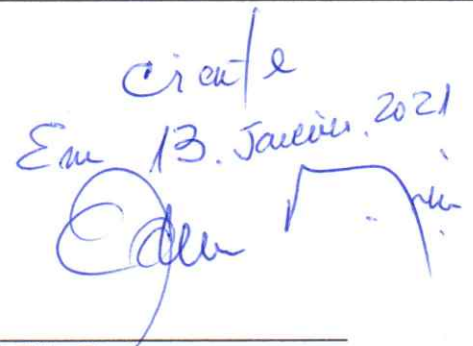 Ciente
Em 13. Janeiro. 2021